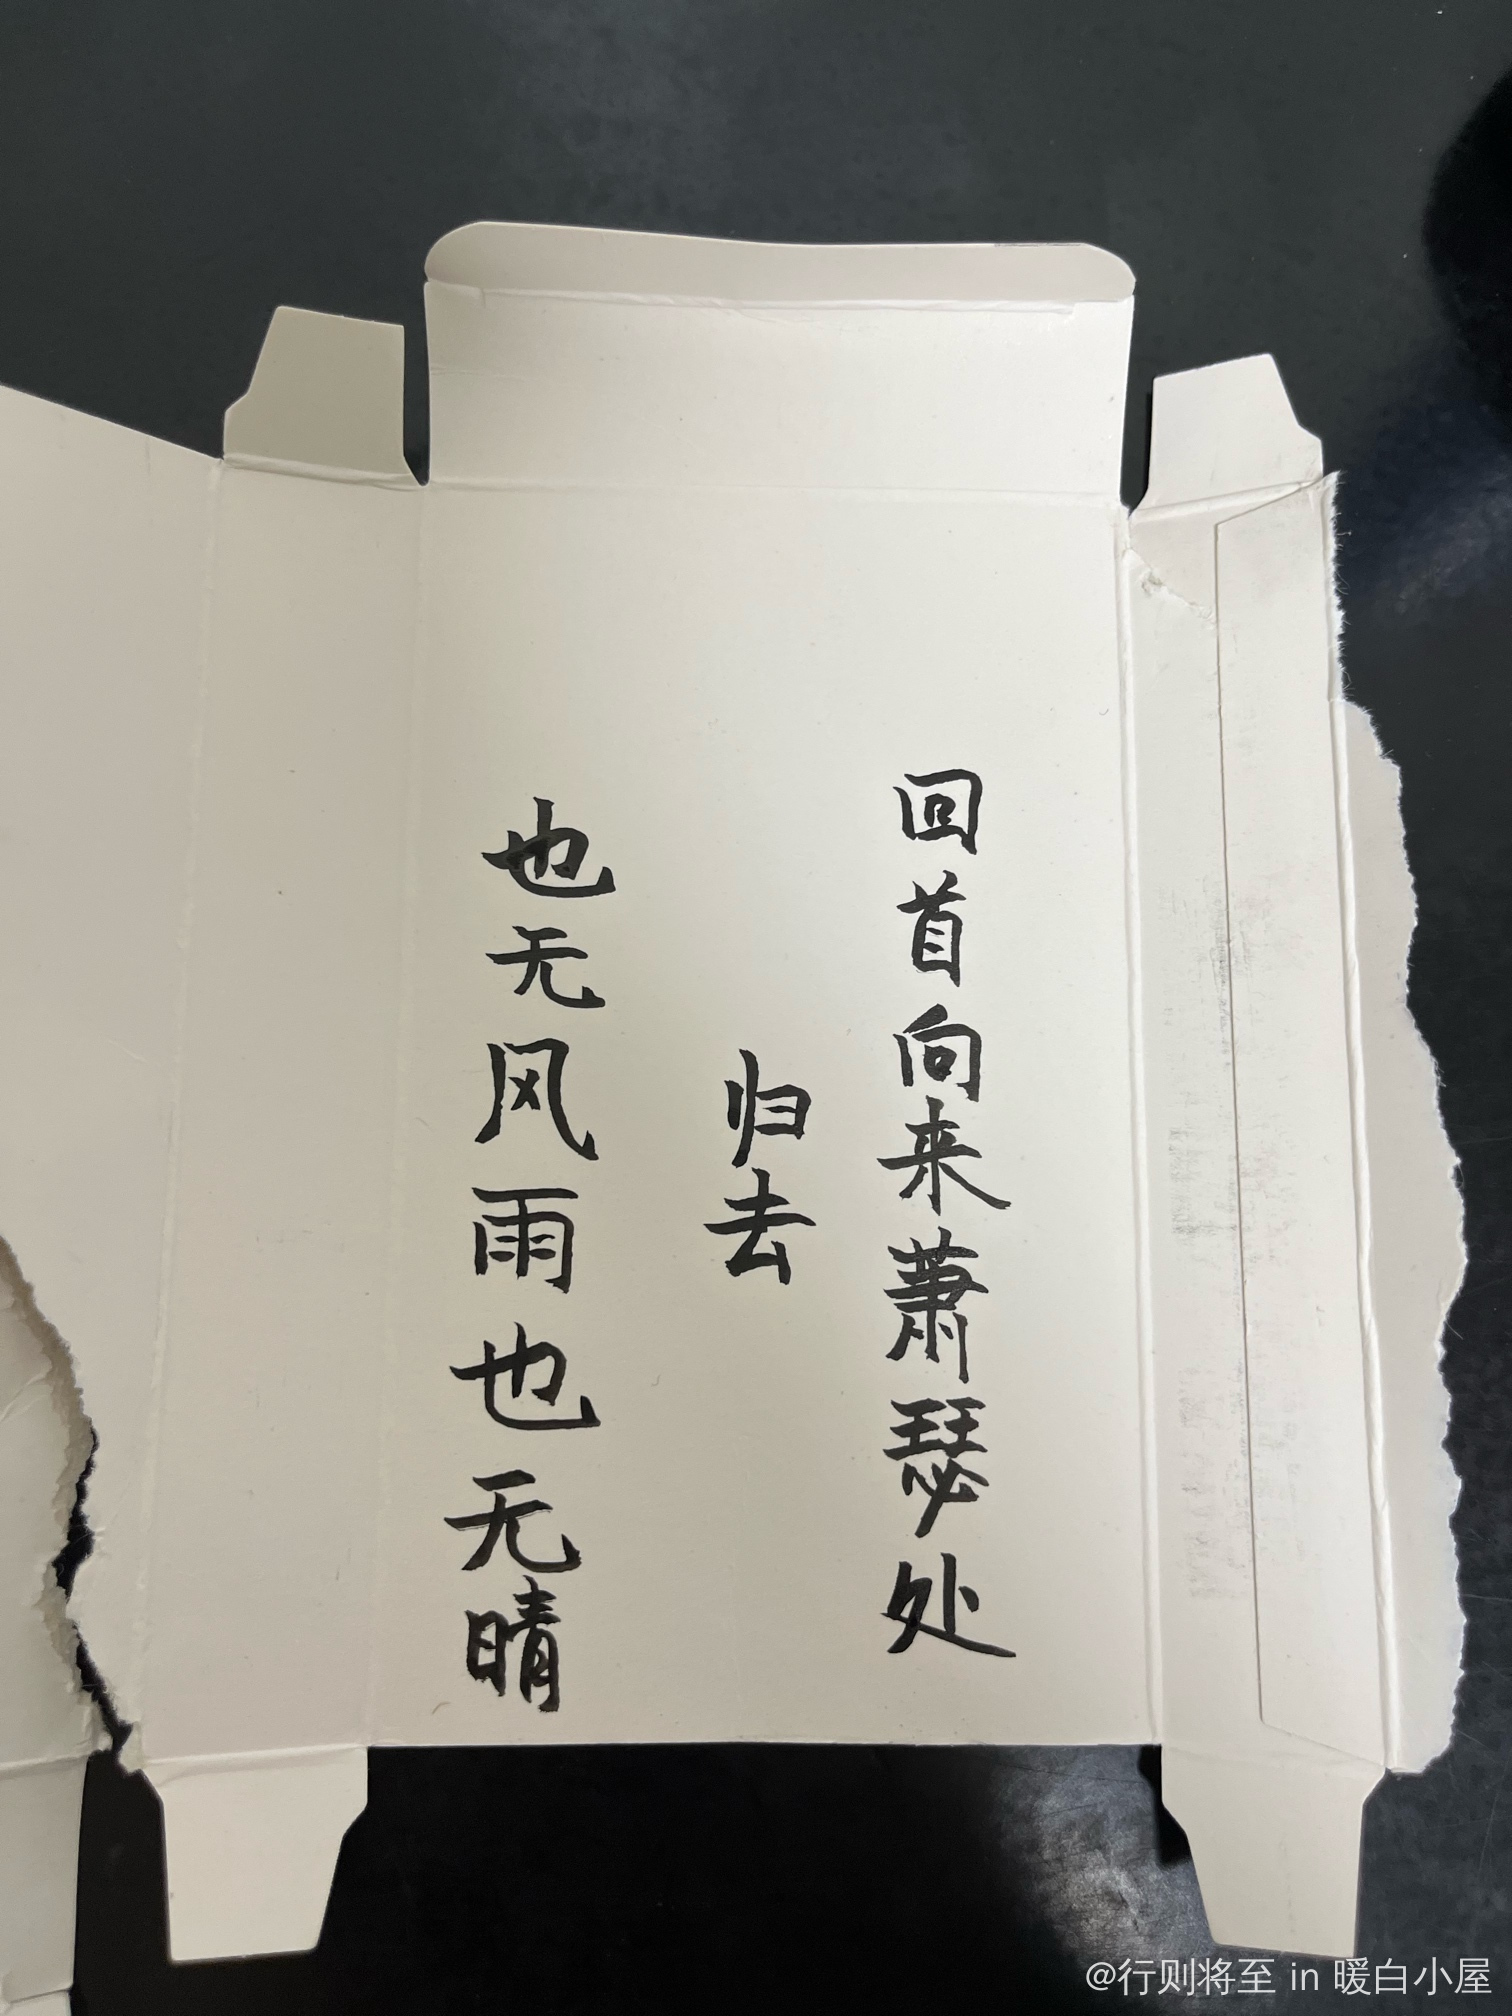 回首向来萧瑟处
归去
也无风雨也无晴
@行则将至 in 暖白小屋